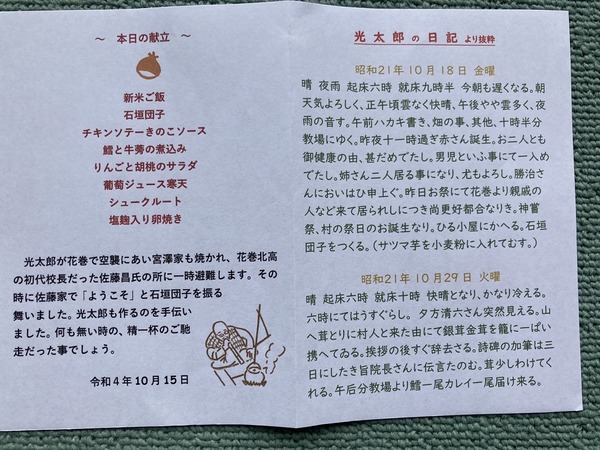 ～ 本日の献立 ～
新米ご飯
石垣団子
チキンソテーきのこソース
鱈と牛蒡の煮込み
りんごと胡桃のサラダ
葡萄ジュース寒天
シュークルート
塩麹入り卵焼き
光太郎が花巻で空襲にあい宮澤家も焼かれ、花巻北高
の初代校長だった佐藤昌氏の所に一時避難します。その
時に佐藤家で「ようこそ」と石垣団子を振る
舞いました。光太郎も作るのを手伝い
ました。何も無い時の、精一杯のご馳
走だった事でしょう。
令和４年１０月１５日
光太郎の日記より抜粋
昭和21年10月18日 金曜
晴 夜雨 起床六時 就床九時半 今朝も遅くなる。朝
天気よろしく、正午頃雲なく快晴、午後やや雲多く、夜
雨の音す。午前ハカキ書き、畑の事、其他、十時半分
教場にゆく。昨夜十一時過ぎ赤さん誕生。お二人とも
御健康の由、甚だめでたし。男児といふ事にて一入め
でたし。姉さん二人居る事になり、尤もよろし。勝治さ
んにおいはひ申上ぐ。昨日お祭にて花巻より親戚の
人など来て居られしにつき尚更好都合なりき。神嘗
祭、村の祭日のお誕生なり。ひる小屋にかへる。石垣
団子をつくる。（サツマ芋を小麦粉に入れてむす。）
昭和21年10月29日 火曜
晴 起床六時 就床十時 快晴となり、かなり冷える。
六時にてはうすぐらし。 夕方清六さん突然見える。山
へ茸とりに村人と来た由にて銀茸金茸を籠に一ぱい
携へてゐる。挨拶の後すぐ辞去さる。詩碑の加筆は三
日にしたき旨院長さんに伝言たのむ。茸少しわけてく
れる。午后分教場より鱈一尾カレイ一尾届け来る。